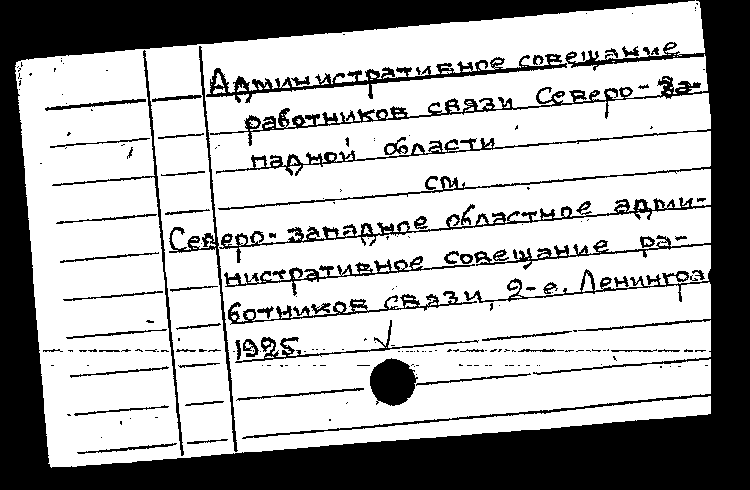 Административное совещание
работников связи Северо-За-
падной области
см.
Северо-западное областное адми-
нистративное совещание ра-
ботников связи, 2-е. Ленингра
1925.